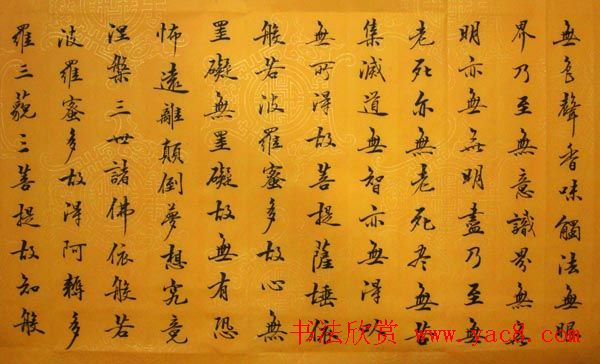 無色聲香味觸法無眼
界乃至無意識界無无
明亦無无明盡乃至無
老死亦無老死尽無苦
集滅道無智亦無得以
無所得故菩提薩埵依
般若波羅蜜多故心無
罣礙無罣礙故無有恐
怖遠離顛倒夢想究竟
涅槃三世諸佛依般若
波羅蜜多故得阿耨多
羅三藐三菩提故知般
书法欣赏 www.yac8.com